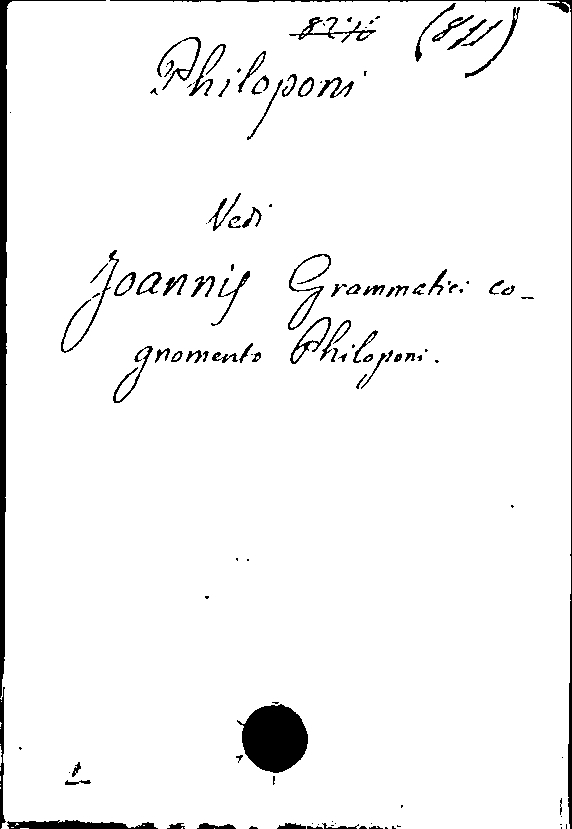 Philoponi
Vedi
Joannis Grammatici co-
gnomento Philoponi.